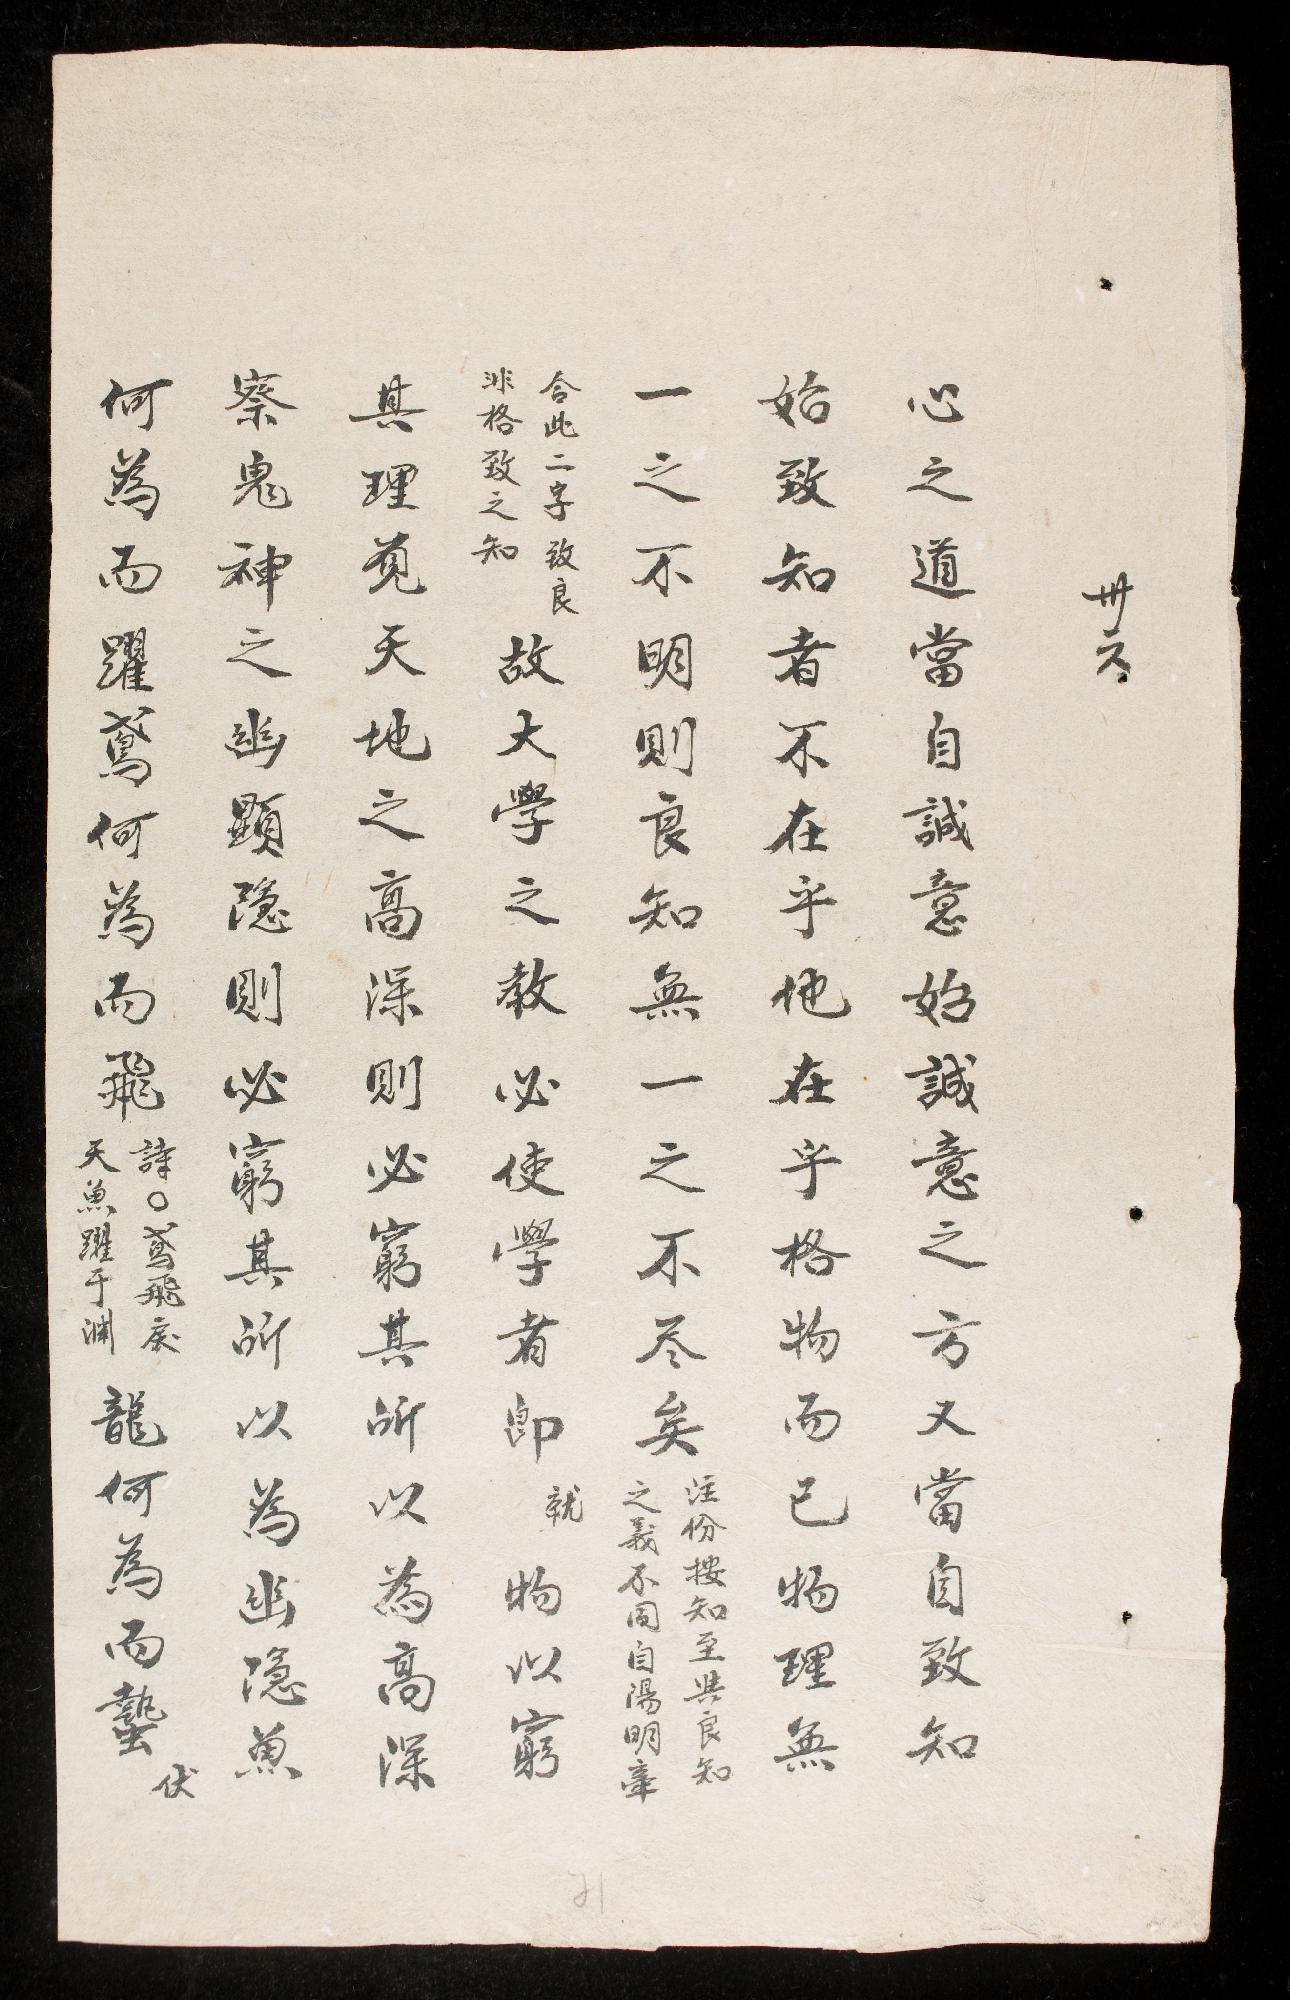 卅六
心之道當自誠意始誠意之方又當自致知
始致知者不在乎他在乎格物而已物理無
一之不明則良知無一之不尽矣
注份按知至與良知
之義不同自陽明牽
合此二字致良
非格致之知
故大學之教必使學者即
就
物以窮
其理覓天地之高深則必窮其所以為高深
察鬼神之幽顯隐則必窮其所以為幽隐魚
何為而躍鳶何為而飛
詩〇鳶飛戾
天魚躍于渊
龍何為而蟄
伏
21